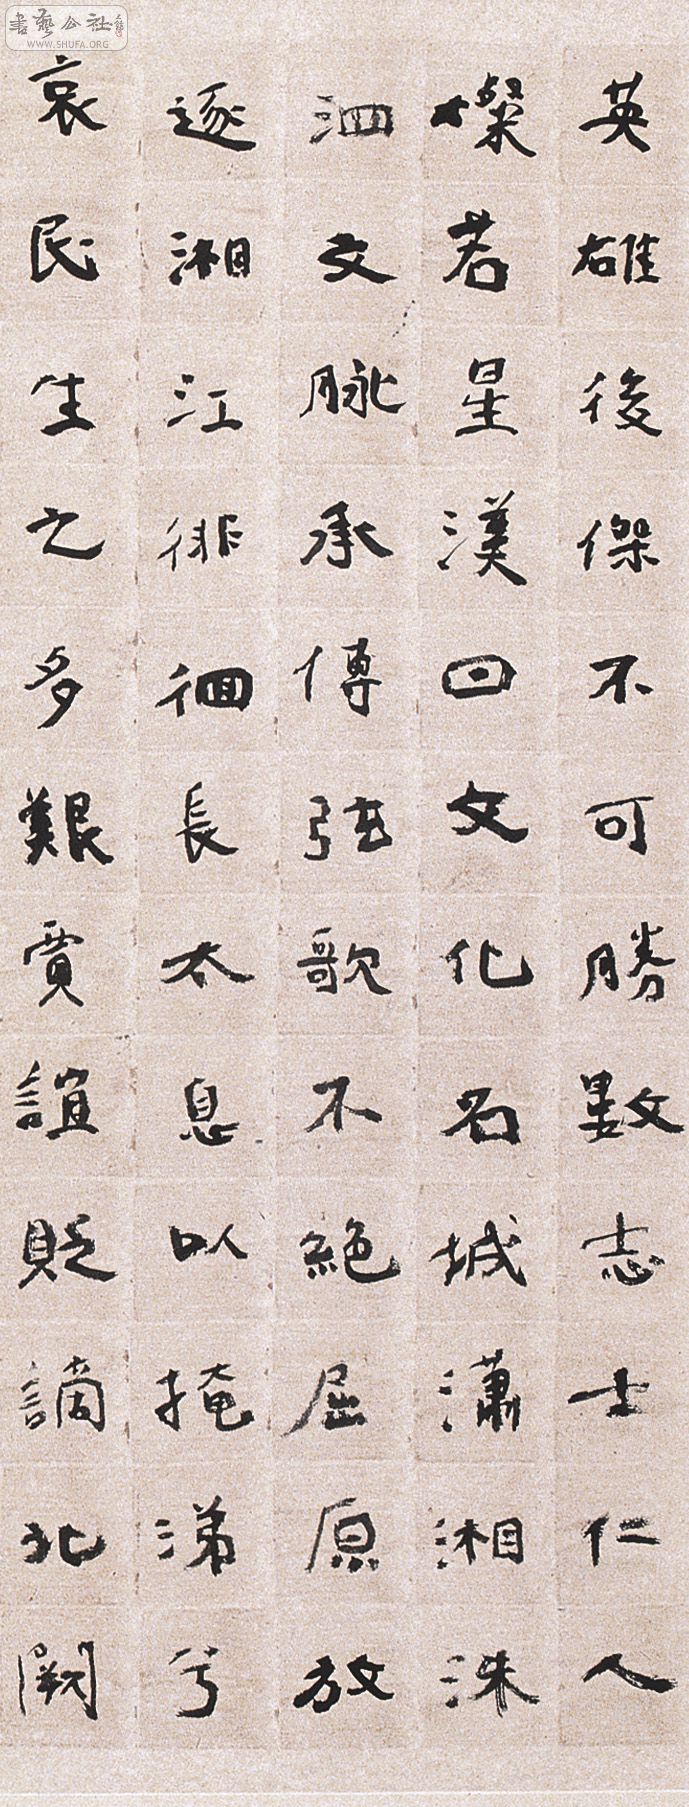 英雄後傑不可勝數志士仁人
燦若星漢曰文化名城瀟湘洙
泗文脉承傳弦歌不絕屈原放
逐湘江徘徊長太息以掩涕兮
哀民生之多艱賈誼貶謫北闕
書藝公社
WWW.SHUFA.ORG